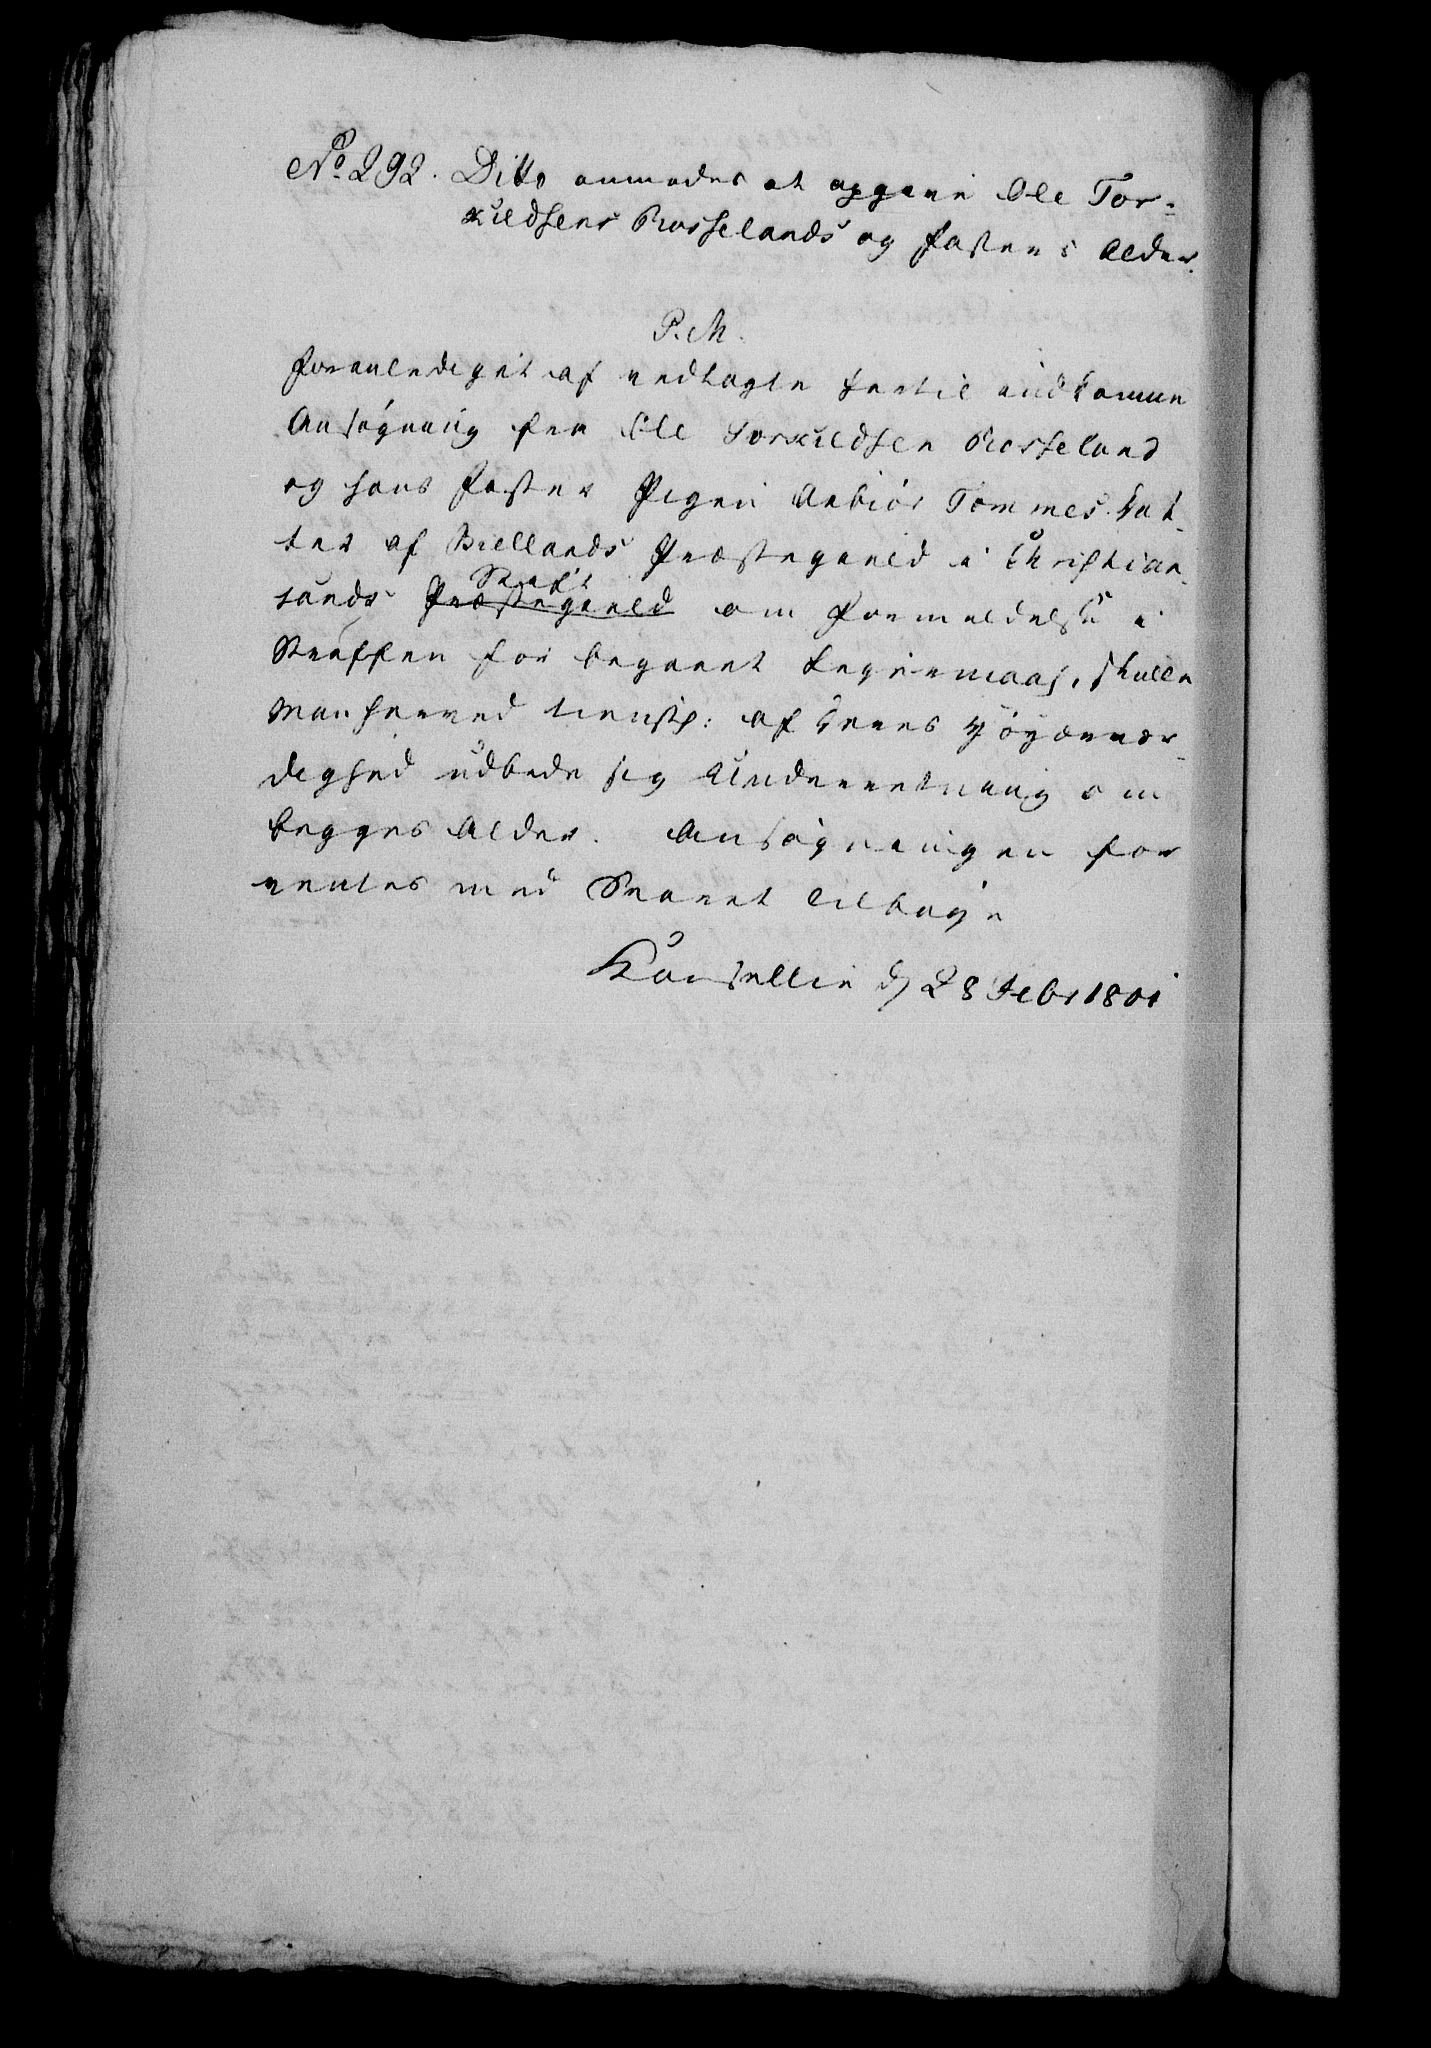 No 292. Ditto anmodes at opgive Ole Tor-
kildsens Rosselands og Fasters Alder.
P. M.
Foranlediget af vedlagte hertil indkomne
Ansøgning fra Ole Torkildsen Rosseland
og hans Faster Pigen Aebiør Tommesdat-
ter af Biellands Præstegaeld i Christian-
sands Præstegaeld Stift om Formildelse i
Straffen for begaaet Leyermaal, skulle
Man herved tienstl: af Deres Høyærvær-
dighed udbede sig Underretning om
begges Alder. Ansøgningen for
ventes med Svaret tilbage
Cancellie d 28 Febr 1801